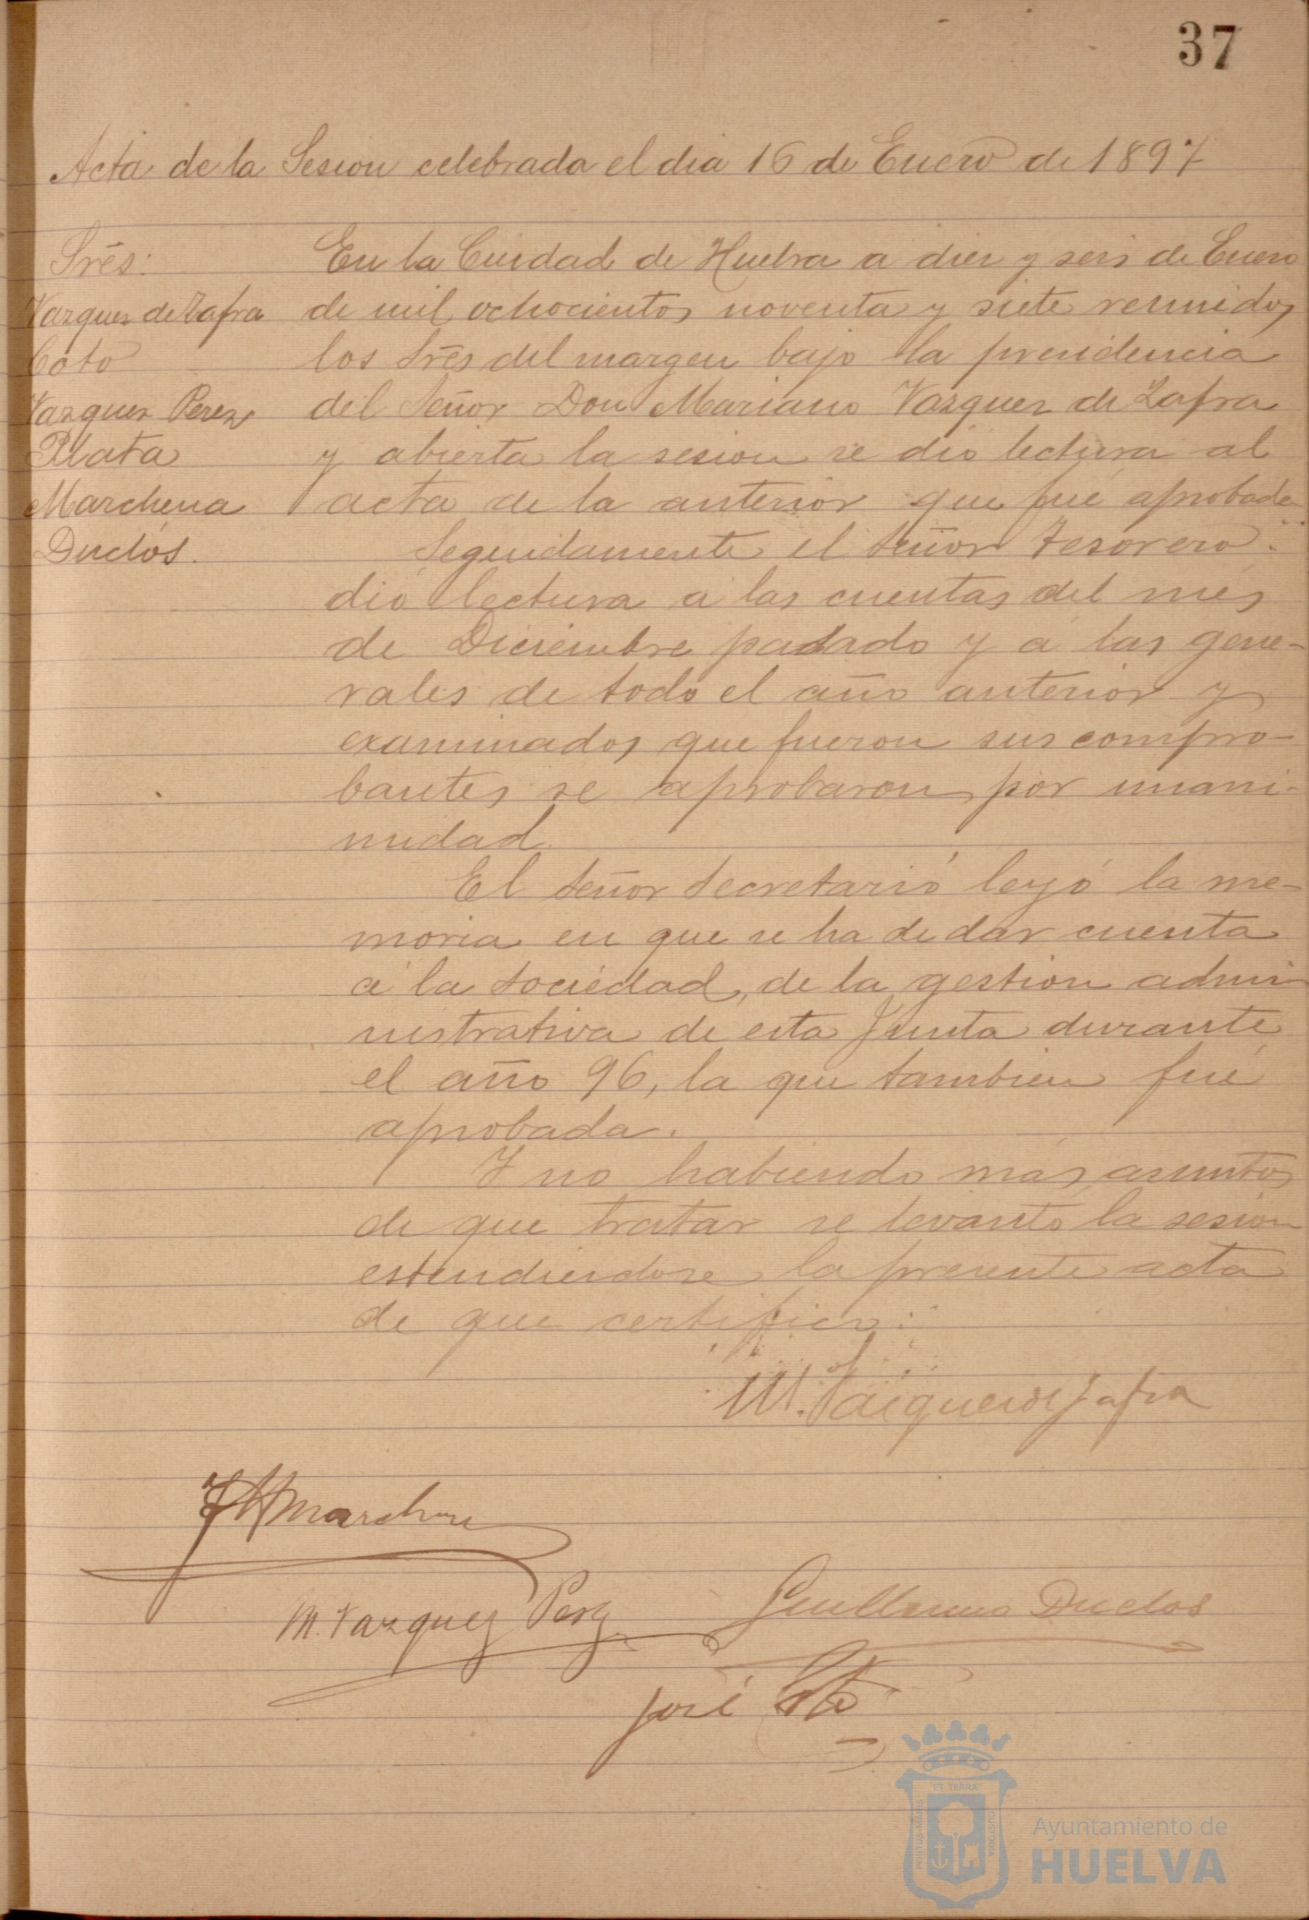 37
Acta de la Sesion celebrada el dia 16 de Enero de 1897
Srēs:
Vazquez de Zafra
Coto
Vazquez Perez
Plata
Marchena
Duclós.
En la Ciudad de Huelva a diez y seis de Enero
de mil ochocientos noventa y siete reunidos
los Srēs del margen bajo la presidencia
del Señor Don Mariano Vazquez de Zafra
y abierta la sesion se dio lectura al
acta de la anterior que fué aprobada
Seguidamente el Señor Tesorero
dió lectura á las cuentas del mes
de Diciembre pasado y á las gene-
rales de todo el año anterior y
examinados que fueron sus compro-
bantes se aprobaron por unani-
midad.
El Señor Secretario leyó la me-
moria en que se ha de dar cuenta
á la Sociedad, de la gestion admi-
nistrativa de esta Junta durante
el año 96, la que tambien fué
aprobada.
Y no habiendo más asuntos
de que tratar se levantó la sesion
estendiendose la presente acta
de que certifico:
M. Vazquez de Zafra
Marchena
M. Vazquez Perez
Guillermo Duclos
José Coto
ET TERRÆ
PORTUS MARIS
CUSTODIA
Ayuntamiento de
HUELVA